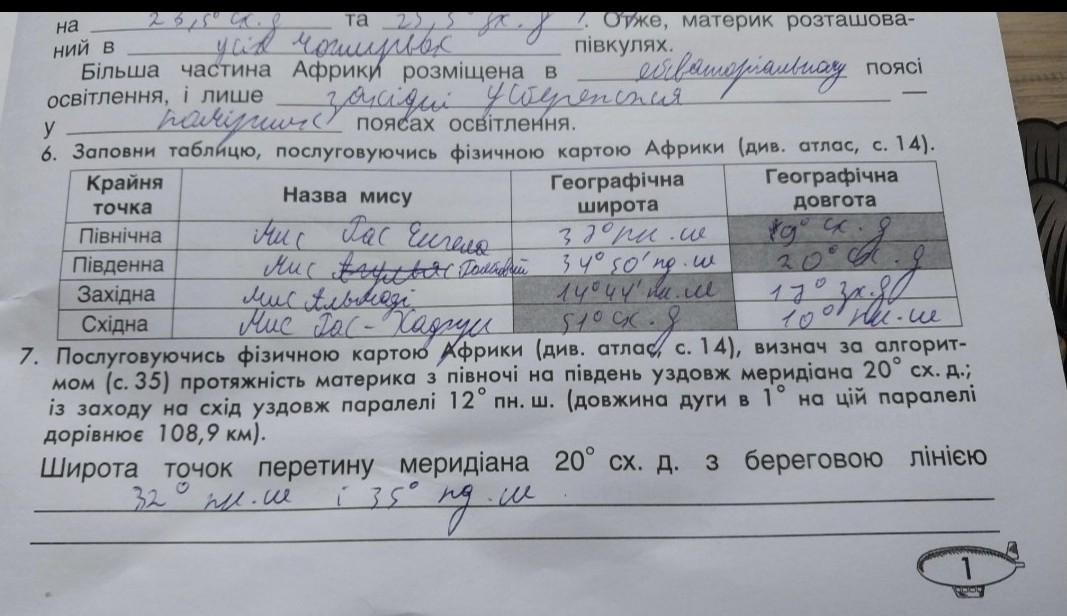 на 23,5° сх. д та 23,5° зх. д. Отже, материк розташова-
ний в усіх чотирьох півкулях.
Більша частина Африки розміщена в поясі
освітлення, і лише західні узбережжя —
у помірних поясах освітлення.
6. Заповни таблицю, послуговуючись фізичною картою Африки (див. атлас, с. 14).
Крайня точка Назва мису Географічна широта Географічна довгота
Північна Мис Рас Енгела 37° пн. ш 9° сх. д
Південна Мис 34° 50' пд. ш 20° сх. д
Західна Мис Альмаді 14° 44' пн. ш 17° зх. д
Східна Мис Рас - Хафун 51° сх. д 10° пн. ш
7. Послуговуючись фізичною картою Африки (див. атлас, с. 14), визнач за алгорит-
мом (с. 35) протяжність материка з півночі на південь уздовж меридіана 20° сх. д.;
із заходу на схід уздовж паралелі 12° пн. ш. (довжина дуги в 1° на цій паралелі
дорівнює 108,9 км).
Широта точок перетину меридіана 20° сх. д. з береговою лінією
32° пн. ш і 35° пд. ш.
1